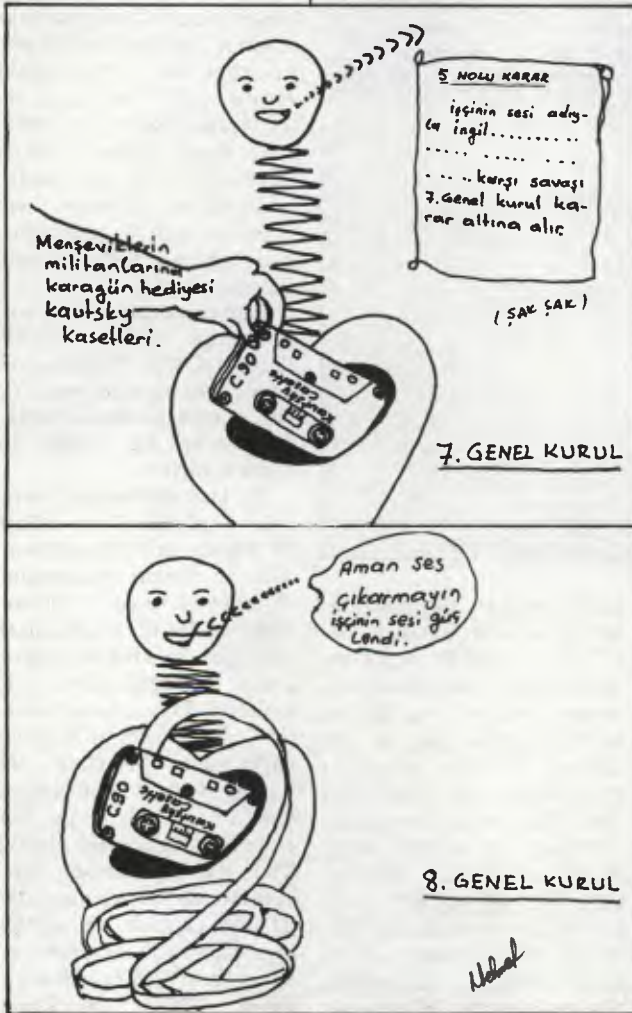 5 NOLU KARAR
işçinin sesi adıy-
la ingil..........
..... ..... ...
.....karşı savaşı
7.Genel kurul ka-
rar altına alır.
(ŞAK ŞAK)
Menşeviklerin
militanlarına
karagün hediyesi
kautsky
kasetleri.
C90
Kautsky
Casette
7. GENEL KURUL
Aman ses
çıkarmayın
işçinin sesi güç
lendi.
C90
Kautsky
Casette
8. GENEL KURUL